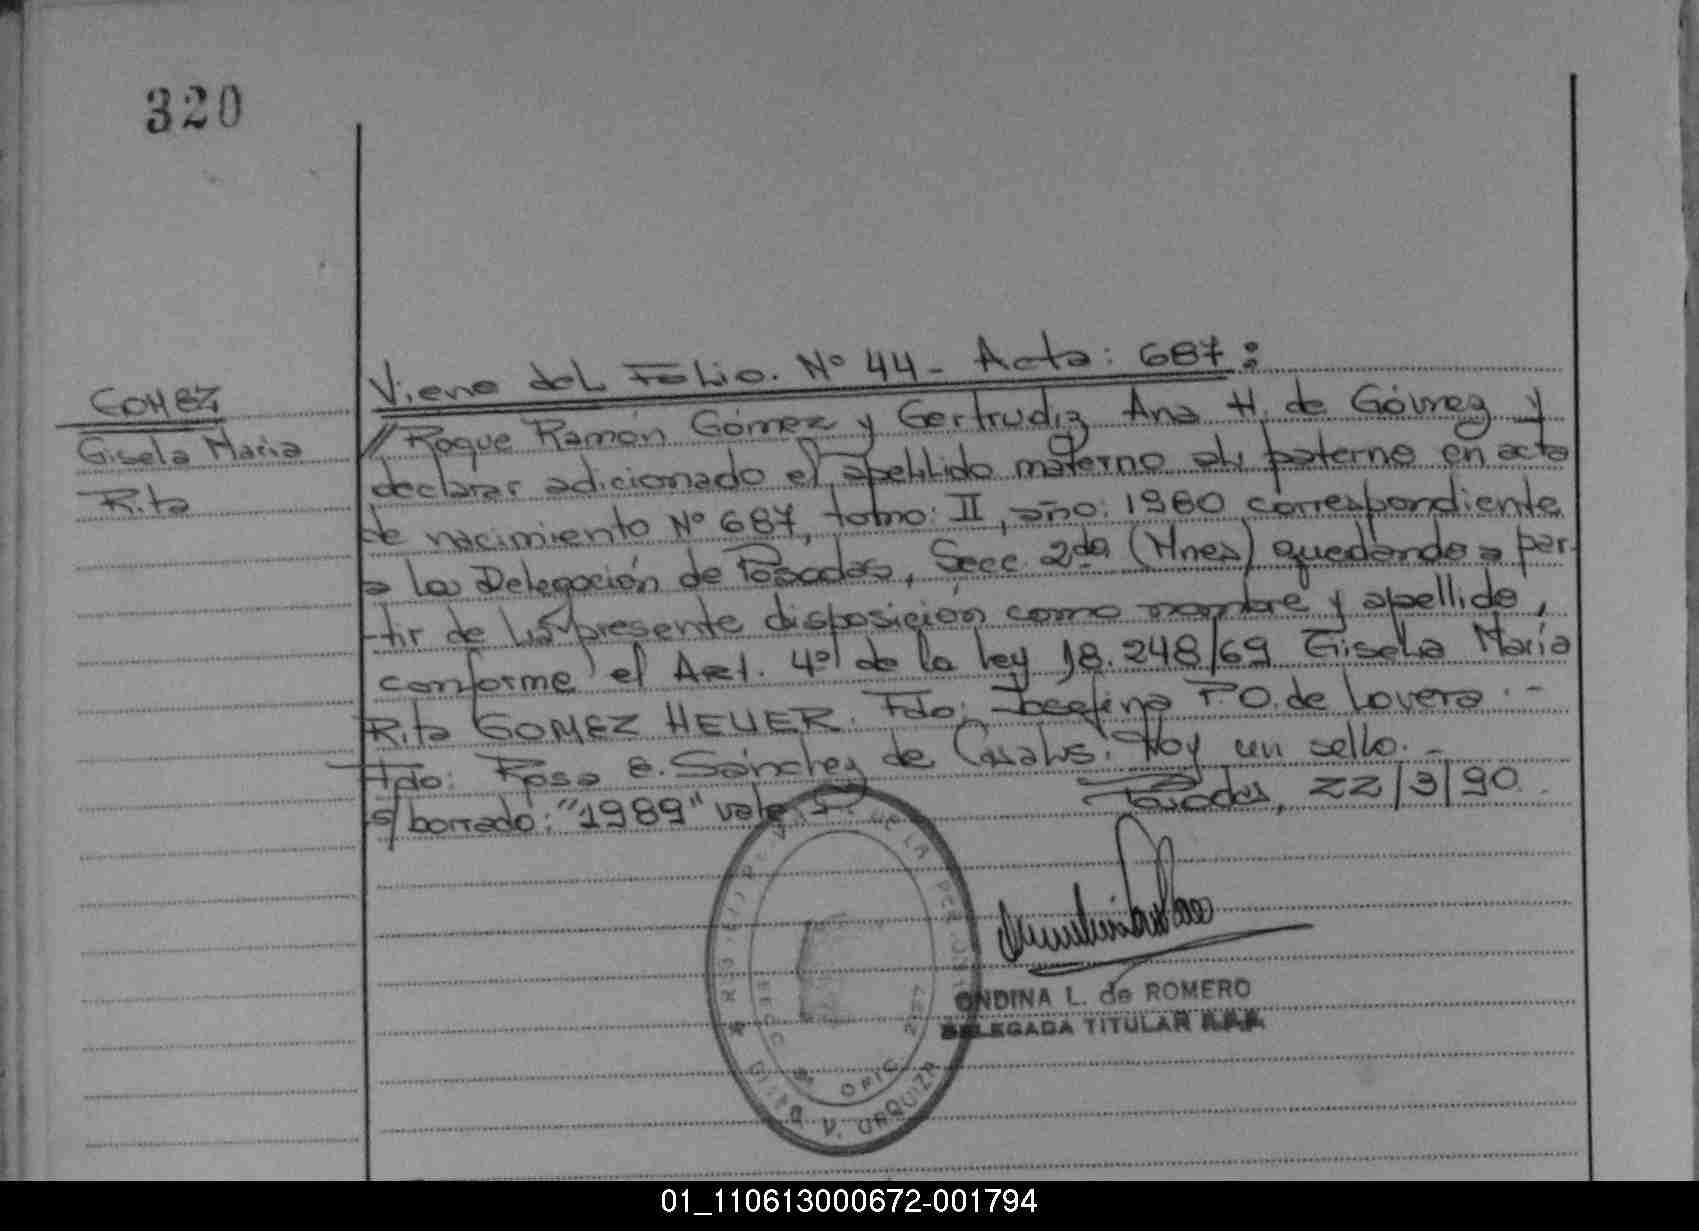 320
GOMEZ
Gisela Maria
Rita
Viene del Folio. Nº 44 - Acta: 687:
// Roque Ramón Gómez y Gertrudiz Ana H. de Gómez y
declarar adicionado el apellido materno al paterno en acta
de nacimiento Nº 687, tomo: II, año: 1980 correspondiente
a la Delegación de Posadas, Secc. 2da (Mnes) quedando a par-
tir de la presente disposición como nombre y apellido,
conforme el Art. 4º de la ley 18.248/69 Gisela María
Rita GOMEZ HEUER. Fdo: Josefina P.O. de Lovera. -
Fdo: Rosa E. Sánchez de. Hay un sello. -
s/borrado: "1989" vale.
Posadas, 22/3/90.
DE LA PER
OFIC.
URQUIZA
ONDINA L. de ROMERO
DELEGADA TITULAR
01_110613000672-001794